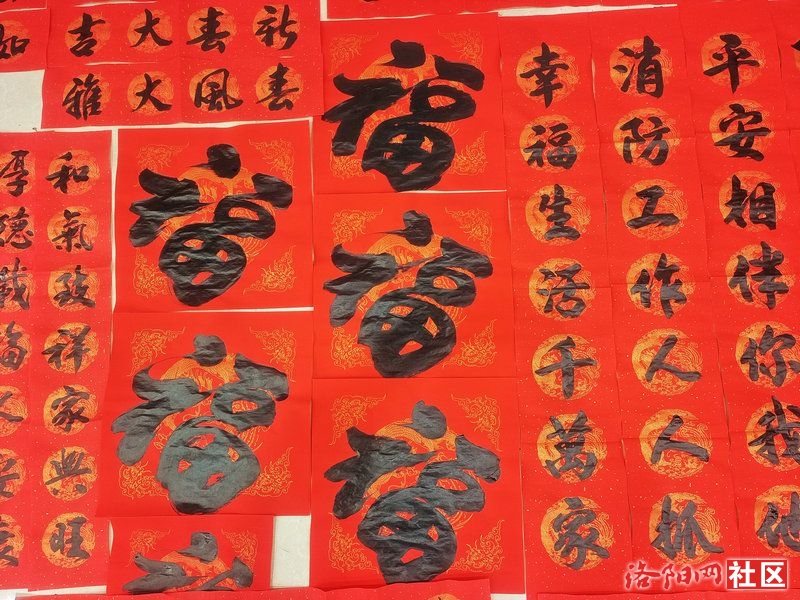 新春大吉
春風大雅
平安相伴你我他
消防工作人人抓
幸福生活千萬家
福
福
福
福
福
和氣致祥家興旺
厚德載福人安
洛阳网社区